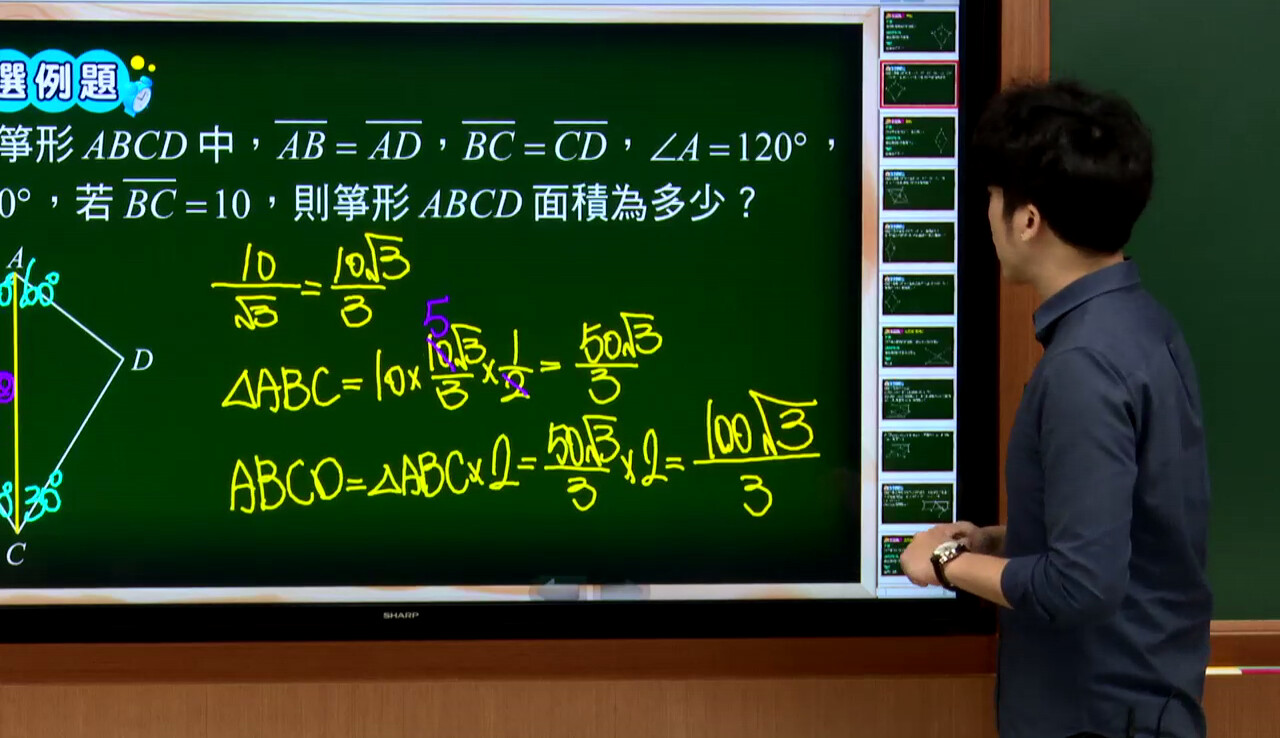 選例題
箏形 ABCD 中，AB = AD，BC = CD，∠A = 120°，
0°，若 BC = 10，則箏形 ABCD 面積為多少？
A
60°
D
30°
C
10/√3 = 10√3/3
5
△ABC = 10 × 10√3/3 × 1/2 = 50√3/3
ABCD = △ABC × 2 = 50√3/3 × 2 = 100√3/3
SHARP